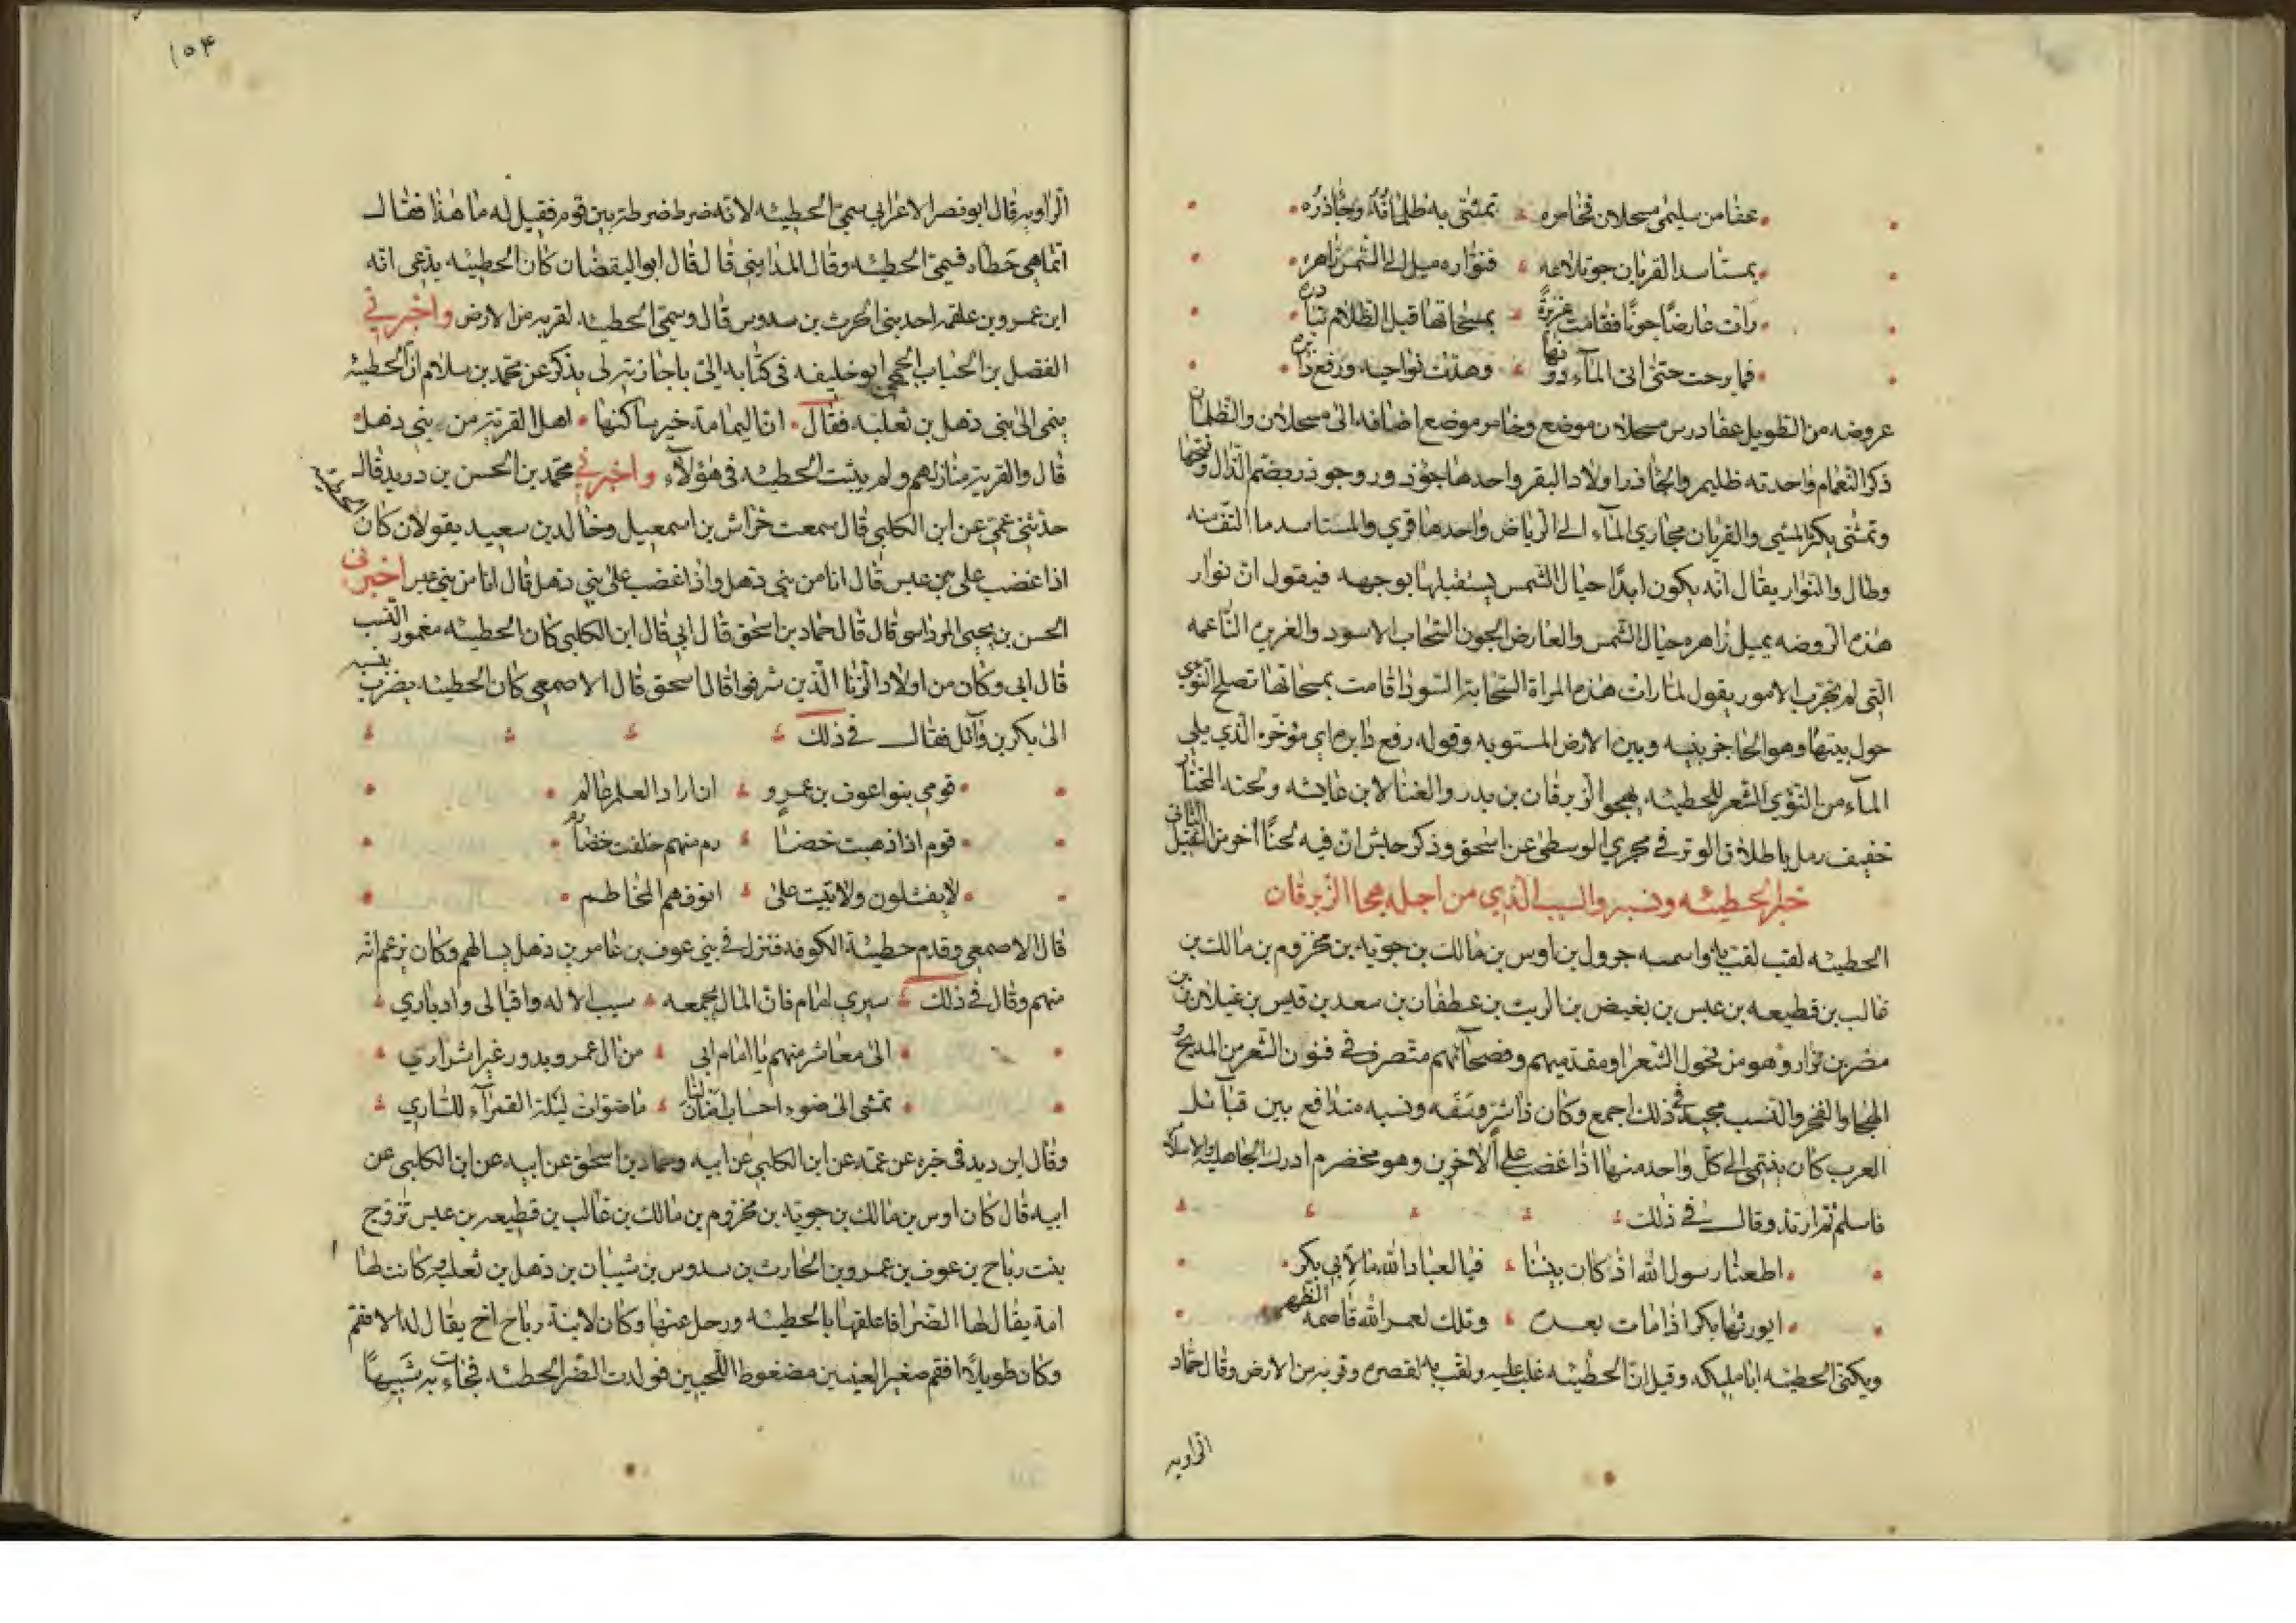 عفا من سليمى مسحلان فحامره تمشى به ظلمانه وجاذره
بمستاسد القريان حو تلاعه فنواره ميل الى الشمس زاهره
رات عارضا جونا فقامت غريزة بمسحاتها قبل الظلام تبادره
فما برحت حتى اتى الماء دونها وهدت نواحيه ورفع دابره
عروضه من الطويل عفا درس مسحلان موضع وحامر موضع اضافه الى مسحلان والظلمان
ذكر النعام واحدته ظليم والجاذر اولاد البقر واحدها جؤذر وجوذر بضم الذال وفتحها
وتمشى يكثر المشي والقريان مجاري الماء الى الرياض واحدها قري والمستاسد ما التف منه
وطال والنوار يقال انه يكون ابدا حيال الشمس يستقبلها بوجهه فيقول ان نوار
هذه الروضه يميل زاهره حيال الشمس والعارض الجون السحاب الاسود والغريره الناعمه
التي لم تجرب الامور يقول لما رات هذه المراة السحابة السودا قامت بمسحاتها تصلح النؤي
حول بيتها وهو الحاجز بينه وبين الارض المستويه وقوله رفع دابره اي مؤخره الذي يلي
الماء من النؤي الشعر للحطيئه يهجو الزبرقان بن بدر والغنا لابن عايشه ولحنه المختار
خفيف رمل باطلاق الوتر في مجري الوسطى عن اسحق وذكر حبش ان فيه لحنا اخر من الثقيل الثاني
خبر الحطيئه ونسبه والسبب الذي من اجله هجا الزبرقان
الحطيئه لقب لقب به واسمه جرول بن اوس بن مالك بن جويه بن مخزوم بن مالك بن
غالب بن قطيعه بن عبس بن بغيض بن الريث بن غطفان بن سعد بن قيس بن عيلان بن
مضر بن نزار وهو من فحول الشعرا ومقدميهم وفصحائهم متصرف في فنون الشعر من المديح و
الهجا والفخر والنسب مجيد في ذلك اجمع وكان ذا شر وسفه ونسبه متدافع بين قبائل
العرب كان ينتمي الى كل واحد منها اذا غضب على الاخرين وهو مخضرم ادرك الجاهليه والاسلام
فاسلم ثم ارتد وقال في ذلك
اطعنا رسول الله اذ كان بيننا فيا لعباد الله ما لابي بكر
ايورثها بكرا اذا مات بعده وتلك لعمر الله قاصمه الظهر
ويكنى الحطيئه ابا مليكه وقيل ان الحطيئه غلب عليه ولقب به لقصره وقربه من الارض وقال حماد
الراويه
١٥٤
الراويه قال ابو نصر الاعرابي سمي الحطيئه لانه ضرط ضرطة بين قوم فقيل له ما هذا فقال
انما هي حطاه فسمي الحطيئه وقال المدايني قال قال ابو اليقضان كان الحطيئه يدعي انه
ابن عمرو بن علقمه احد بني الحرث بن سدوس قال وسمي الحطيئه لقربه من الارض واخبرني
الفضل بن الحباب الجمحي ابو خليفه في كتابه الي باجازته لي يذكر عن محمد بن سلام ان الحطيئه
ينمي الى بني ذهل بن ثعلبه فقال ان اليمامة خير ساكنها اهل القرية من بني ذهل
قال والقرية منازلهم ولم يثبت الحطيئه في هؤلاء واخبرني محمد بن الحسن بن دريد قال
حدثني عمي عن ابن الكلبي قال سمعت خراش بن اسمعيل وخالد بن سعيد يقولان كان
اذا غضب على بني عبس قال انا من بني ذهل واذا غضب على بني ذهل قال انا من بني عبس اخبرني
الحسن بن يحيى المرداسي قال قال حماد بن اسحق قال ابي قال ابن الكلبي كان الحطيئه مغمور النسب
قال ابي وكان من اولاد الزنا الذين شرفوا قال اسحق قال الاصمعي كان الحطيئه يضرب بنسبه
الى بكر بن وائل فقال في ذلك
قومي بنوا عوف بن عمرو ان اراد العلم عالم
قوم اذا ذهبت خضا رم منهم خلفت خضارم
لا يفشلون ولا تبيت على انوفهم المخاطم
قال الاصمعي وقدم حطيئة الكوفه فنزل في بني عوف بن عامر بن ذهل يسالهم وكان يزعم انه
منهم وقال في ذلك سيري امام فان المال يجمعه سيب الاله واقبالي وادباري
الى معاشر منهم يا امام ابي من ال عمرو بدور غير اشراري
تمشى الى ضوء احساب اضان لنا ما ضوات ليلة القمراء للساري
وقال ابن دريد في خبره عن عمه عن ابن الكلبي عن ابيه وحماد بن اسحق عن ابيه عن ابن الكلبي عن
ابيه قال كان اوس بن مالك بن جويه بن مخزوم بن مالك بن غالب بن قطيعه بن عبس تزوج
بنت رباح بن عوف بن عمرو بن الحارث بن سدوس بن شيبان بن ذهل بن ثعلبه وكانت لها
امة يقال لها الضرا فاعلقها بالحطيئه ورحل عنها وكان لابنة رباح اخ يقال له الافقم
وكان طويلا افقم صغير العينين مضغوط اللحيين فولدت الضرا الحطيئه فجاءت به شبيها